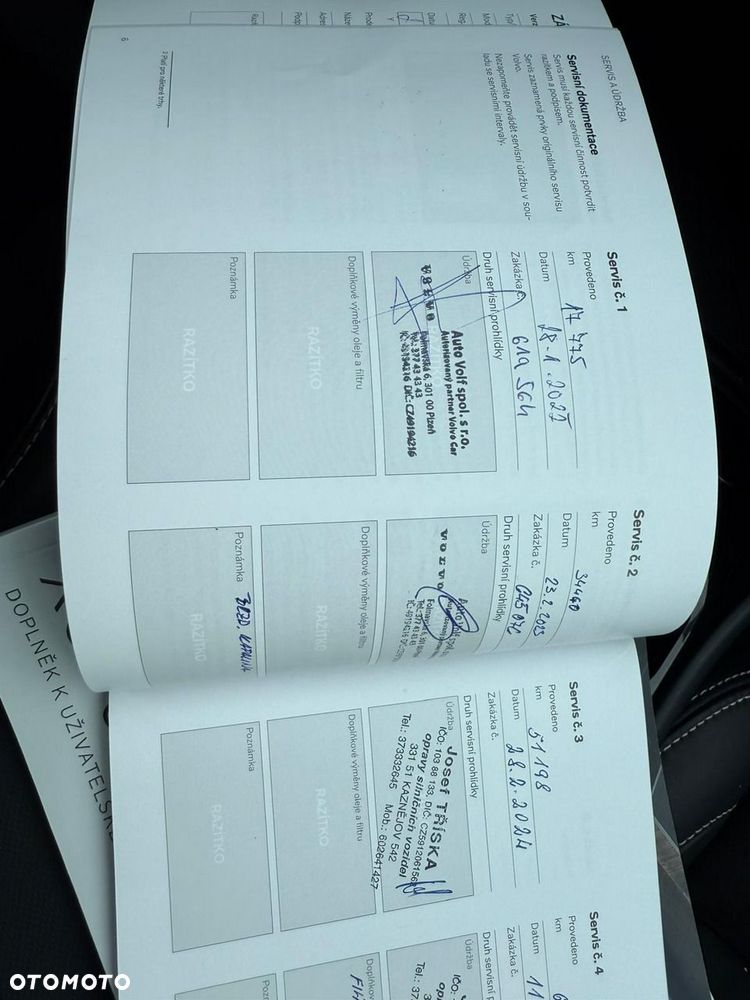 SERVIS A ÚDRŽBA
Servisní dokumentace
Servis musí každou servisní činnost potvrdit
razítkem a podpisem.
Servis zaznamená prvky originálního servisu
Volvo.
Nezapomeňte provádět servisní údržbu v sou-
ladu se servisními intervaly.
1 Platí pro některé trhy.
6
Servis č. 1
Provedeno
km 17 775
Datum
Zakázka č. 619 564
Druh servisní prohlídky
Údržba
VOLVO
Auto Volf spol. s r.o.
Autorizovaný partner Volvo Car
6, 301 00 Plzeň
Tel.: 377 43 43 43
DIČ: CZ49194216
Doplňkové výměny oleje a filtru
RAZÍTKO
Poznámka
RAZÍTKO
Servis č. 2
Provedeno
km 34440
Datum 23.2.2023
Zakázka č.
Druh servisní prohlídky
Údržba
VOLVO
Doplňkové výměny oleje a filtru
RAZÍTKO
Poznámka
RAZÍTKO
Servis č. 3
Provedeno
km 51198
Datum 28.2.2024
Zakázka č.
Druh servisní prohlídky
Údržba
Josef TŘÍSKA
IČO: 103 88 133, DIČ: CZ591206156
opravy silničních vozidel
331 51 KAZNĚJOV 542
Tel.: 373332645 Mob.: 602641427
Doplňkové výměny oleje a filtru
RAZÍTKO
Poznámka
RAZÍTKO
Servis č. 4
Provedeno
km
Datum 11
Zakázka č.
Druh
Údržba
IČO:
Tel.: 37
DOPLNĚK K UŽIVATELSKÉ
OTOMOTO